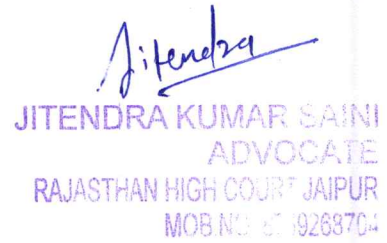 Jitendra
JITENDRA KUMAR SAINI
ADVOCATE
RAJASTHAN HIGH COURT JAIPUR
MOB.NO.